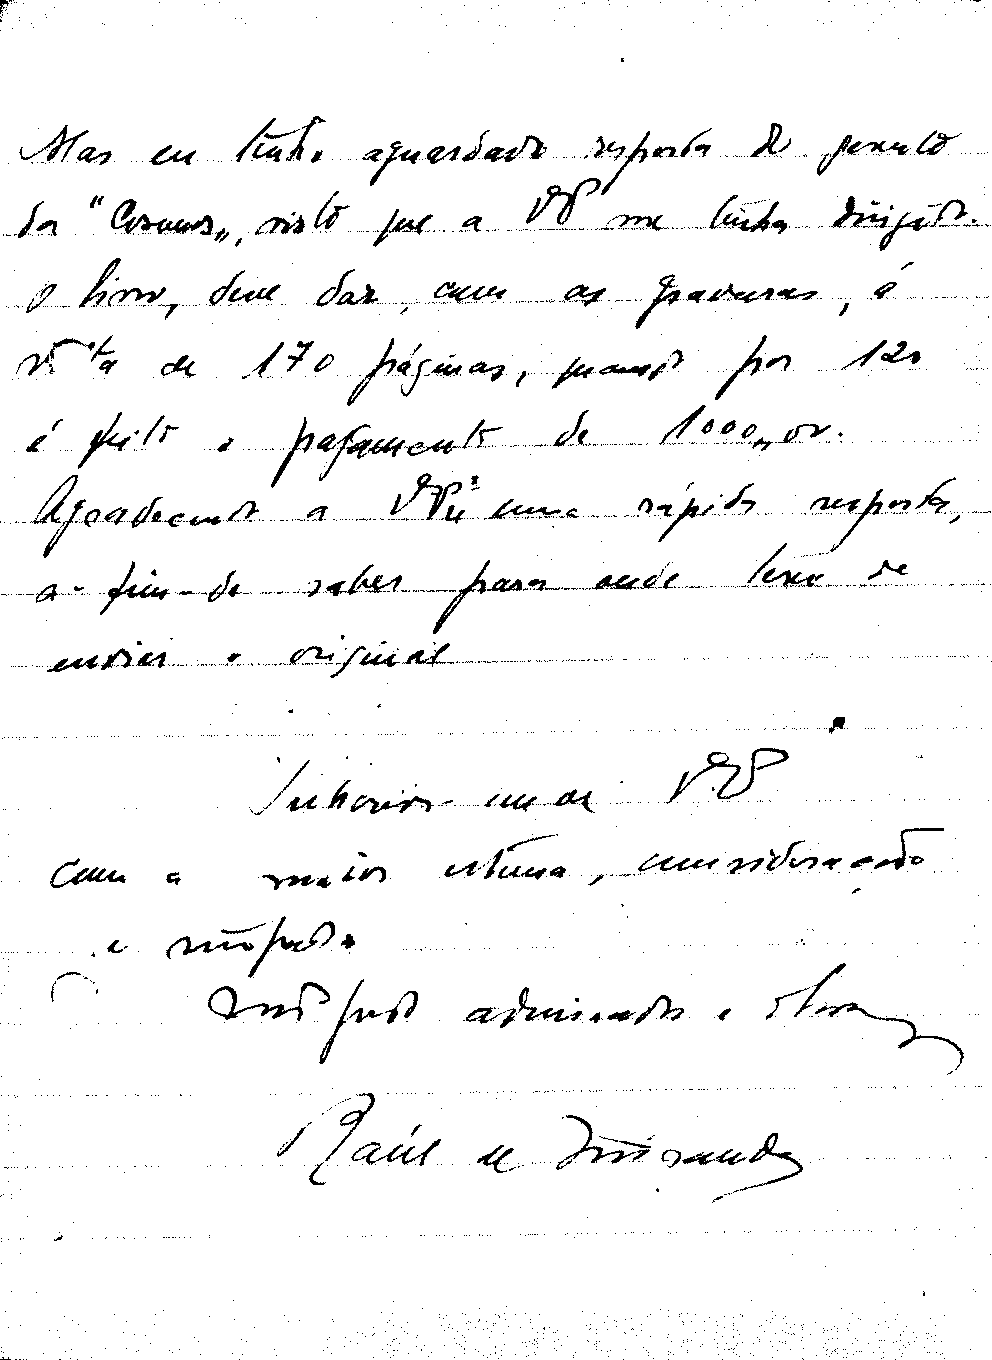 Mas eu tinha aguardado resposta de
da "Cosmos„, visto que a me tinha dirigido.
O livro, deve dar, com as gravuras, á
vista de 170 páginas, quando por 120
é feito o pagamento de 1000„00.
Agradecendo a uma rápida resposta,
a-fim-de saber para onde hei de
enviar o original
com a maior estima, consideração
e respeito
admirador e
Raúl de Miranda